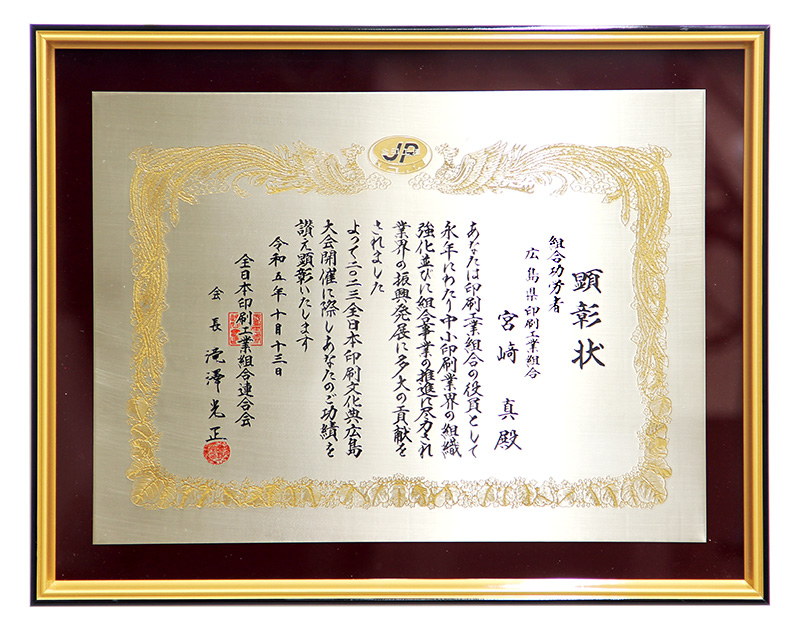 JP
顕彰状
組合功労者
広島県印刷工業組合
宮崎 真 殿
あなたは印刷工業組合の役員として
永年にわたり中小印刷業界の組織
強化並びに組合事業の推進に尽力され
業界の振興発展に多大の貢献を
されました
よって二〇二三全日本印刷文化典広島
大会開催に際しあなたのご功績を
讃え顕彰いたします
令和五年十月十三日
全日本印刷工業組合連合会
会長 滝澤光正